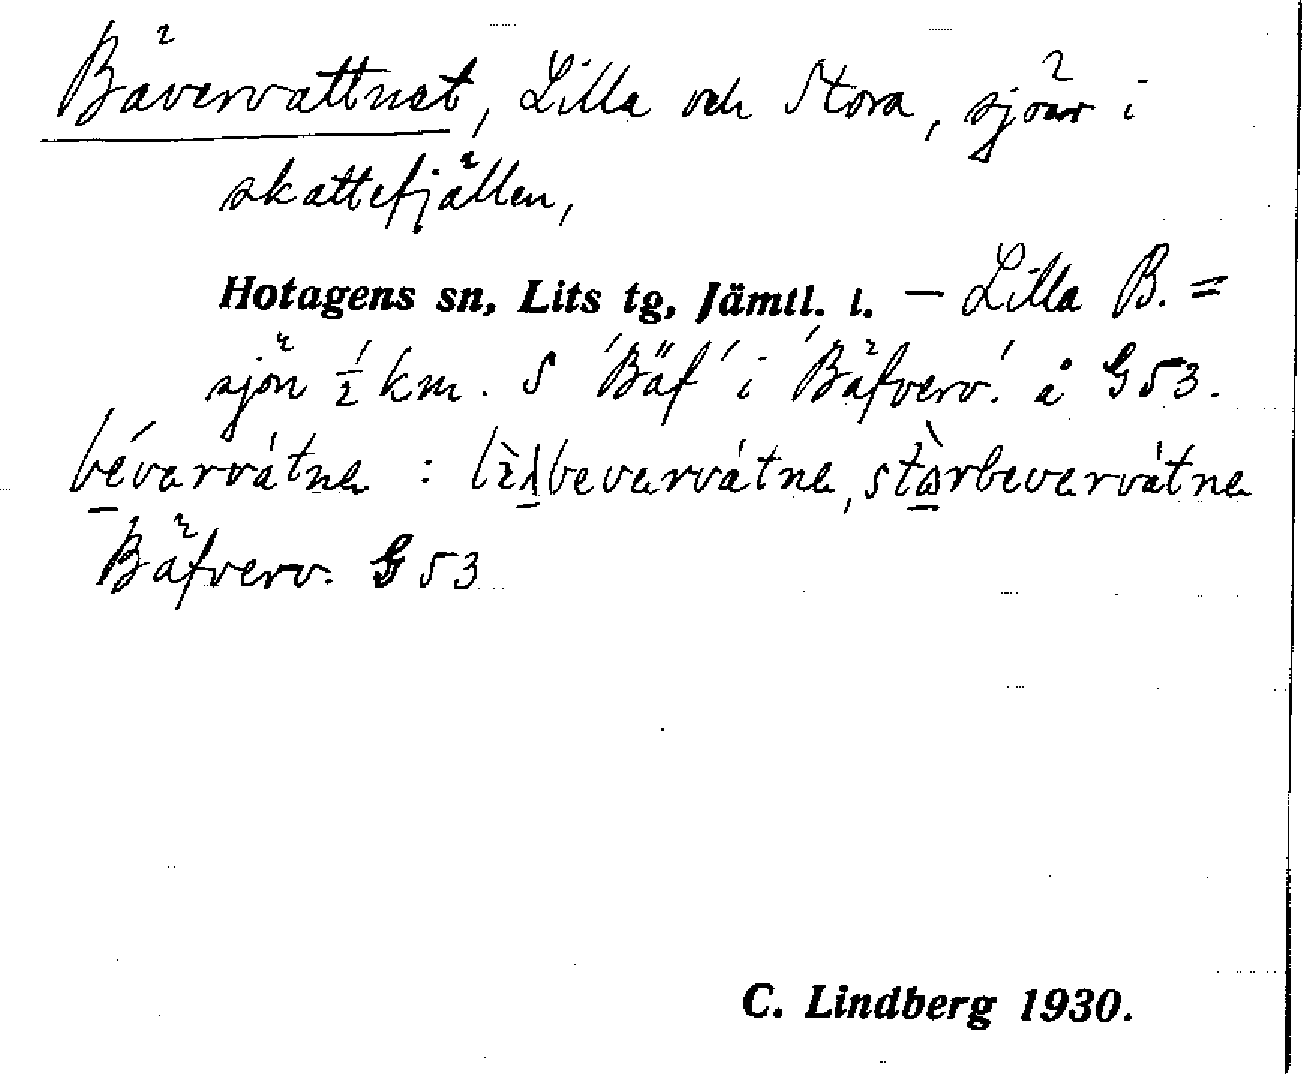 Bävervattnet, Lilla och Stora, sjöar i
skattefjällen,
Hotagens sn, Lits tg, Jämtl. l. — Lilla B. =
sjön ½ km. S 'Bäf' i 'Bäfverv.' å G53.
bévarvátne : lìƚbevarvátne, stòrbevarvátne
Bäfverv. G 53
C. Lindberg 1930.